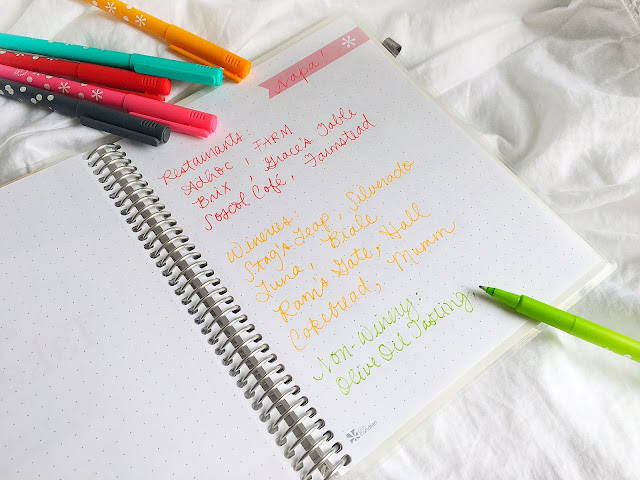 Napa!
Restaurants:
Adhoc, FARM
Brix, Grace's Table
Soscol Café, Farmstead
Wineries:
Stag's Leap, Silverado
Luna, Biale
Ram's Gate, Hall
Cakebread, Mumm
Non-Winery:
Olive Oil Tasting